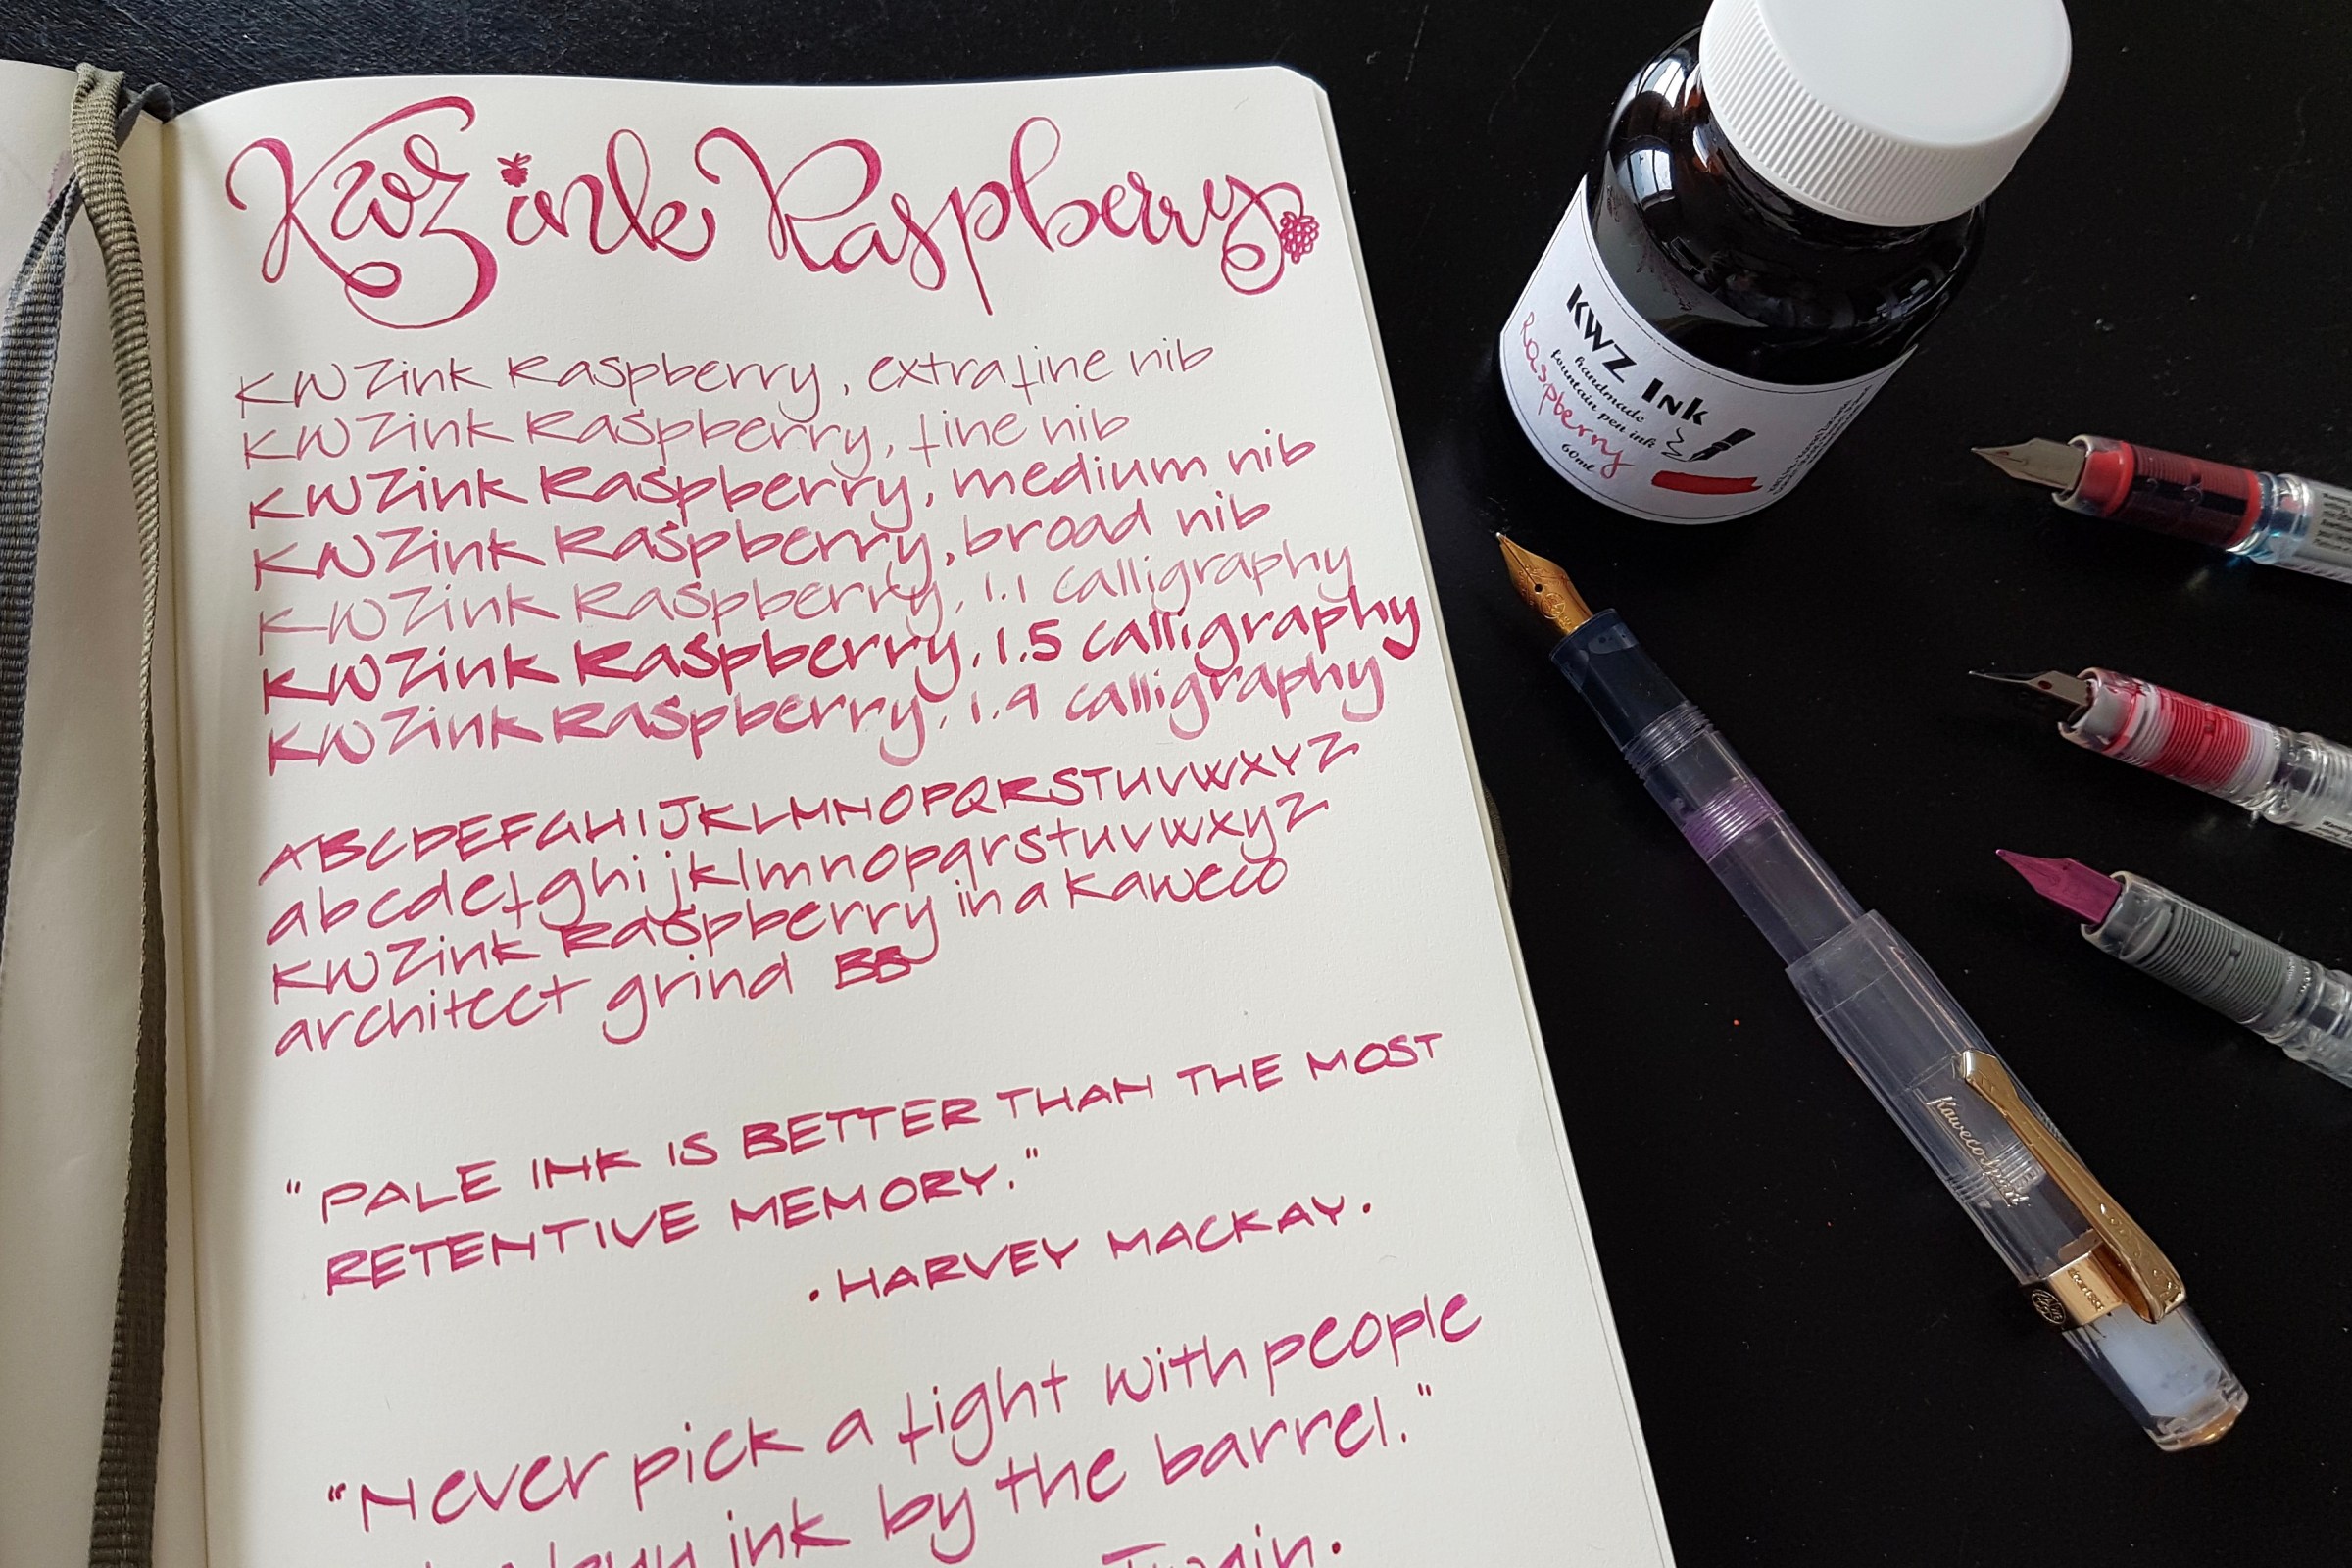 KWZ ink Raspberry
KWZ ink Raspberry, extra fine nib
KWZ ink Raspberry, fine nib
KWZ ink Raspberry, medium nib
KWZ ink Raspberry, broad nib
KWZ ink Raspberry, 1.1 calligraphy
KWZ ink Raspberry, 1.5 calligraphy
KWZ ink Raspberry, 1.9 calligraphy
ABCDEFGHIJKLMNOPQRSTUVWXYZ
abcdefghijklmnopqrstuvwxyz
KWZ ink Raspberry in a Kaweco
architect grind BB
"PALE INK IS BETTER THAN THE MOST
RETENTIVE MEMORY."
• HARVEY MACKAY.
"Never pick a fight with people
buy ink by the barrel."
Twain.
KWZ Ink
handmade
fountain pen ink
Raspberry
60ml
Kaweco Sport